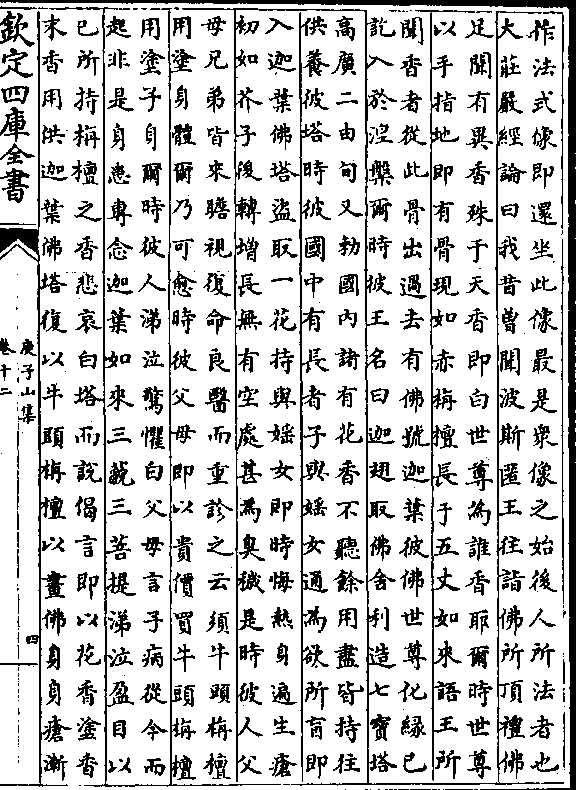 作法式像即還坐此像最是衆像之始後人所法者也
大莊嚴經論曰我昔曾聞波斯匿王往詣佛所頂禮佛
足聞有異香殊于天香即白世尊為誰香耶爾時世尊
以手指地即有骨現如赤栴檀長于五丈如來語王所
聞香者從此骨出過去有佛號迦葉彼佛世尊化緣已
訖入於涅槃爾時彼王名曰迦翅取佛舍利造七寶塔
高廣二由旬又勅國內諸有花香不聽餘用盡皆持往
供養彼塔時彼國中有長者子與婬女通為欲所盲即
入迦葉佛塔盜取一花持與婬女即時悔熱身遍生瘡
初如芥子後轉增長無有空處甚為臭穢是時彼人父
母兄弟皆來瞻視復命良醫而重診之云須牛頭栴檀
用塗身體爾乃可愈時彼父母即以貴價買牛頭栴檀
用塗子身爾時彼人涕泣驚懼白父母言子病從今而
起非是身患專念迦葉如來三藐三菩提涕泣盈目以
已所持栴檀之香悲哀白塔而說偈言即以花香塗香
末香用洪迦葉佛塔復以牛頭栴檀以畫佛身身瘡漸
欽定四庫全書
庾子山集
卷十二
四